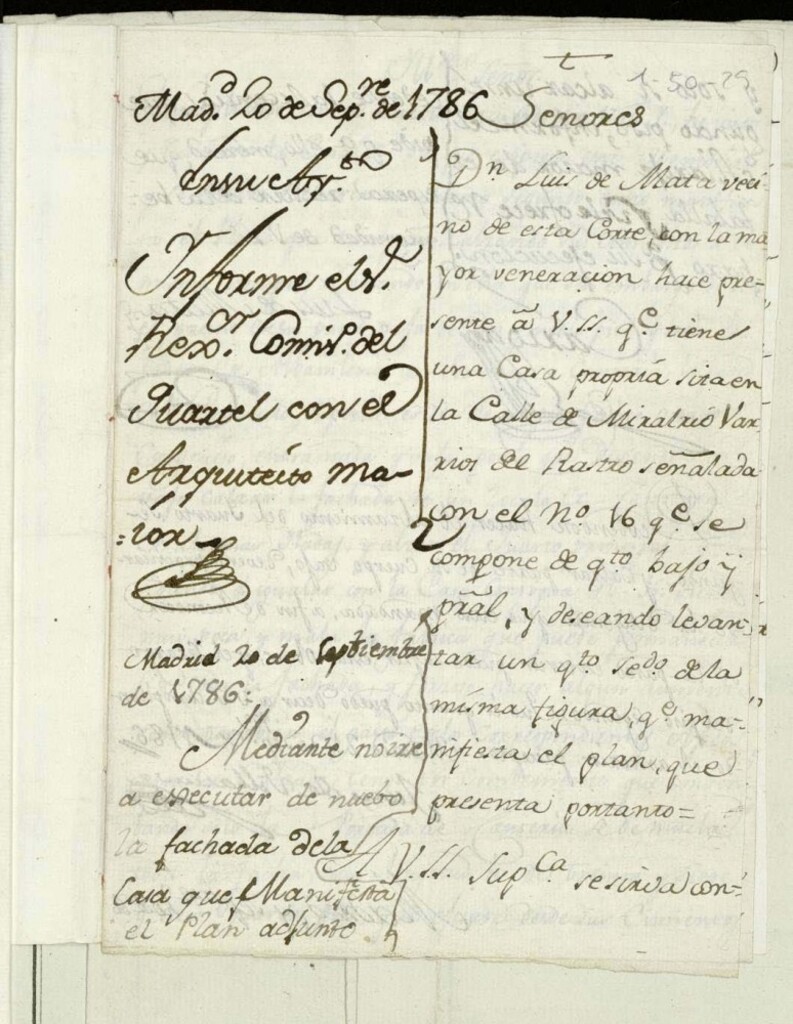 1-50-29
Mad.d 20 de Sep.re de 1786
En su Ay.to
Ynforme el S.r
Rex.or Comis.o del
Quartel con el
Arquitecto ma-
ior
Madrid 20 de Septiembre
de 1786:
Mediante no irse
a essecutar de nuebo
la fachada dela
Casa que Manifiesta
el Plan adjunto
Señores
D.n Luis de Mata veci-
no de esta Corte, con la ma
yor veneracion hace pre-
sente â V.SS. q.e tiene
una Casa propria sita en
la Calle de Miralrió Var-
rios del Rastro señalada
con el N.o 16 q.e se
compone de q.to bajo y
prâl, y deseando levan-
tar un q.to seg.do de la
misma figura, q.e ma-
nifiesta el plan, que
presenta por tanto =
A V.SS. Sup.ca se sirva con-